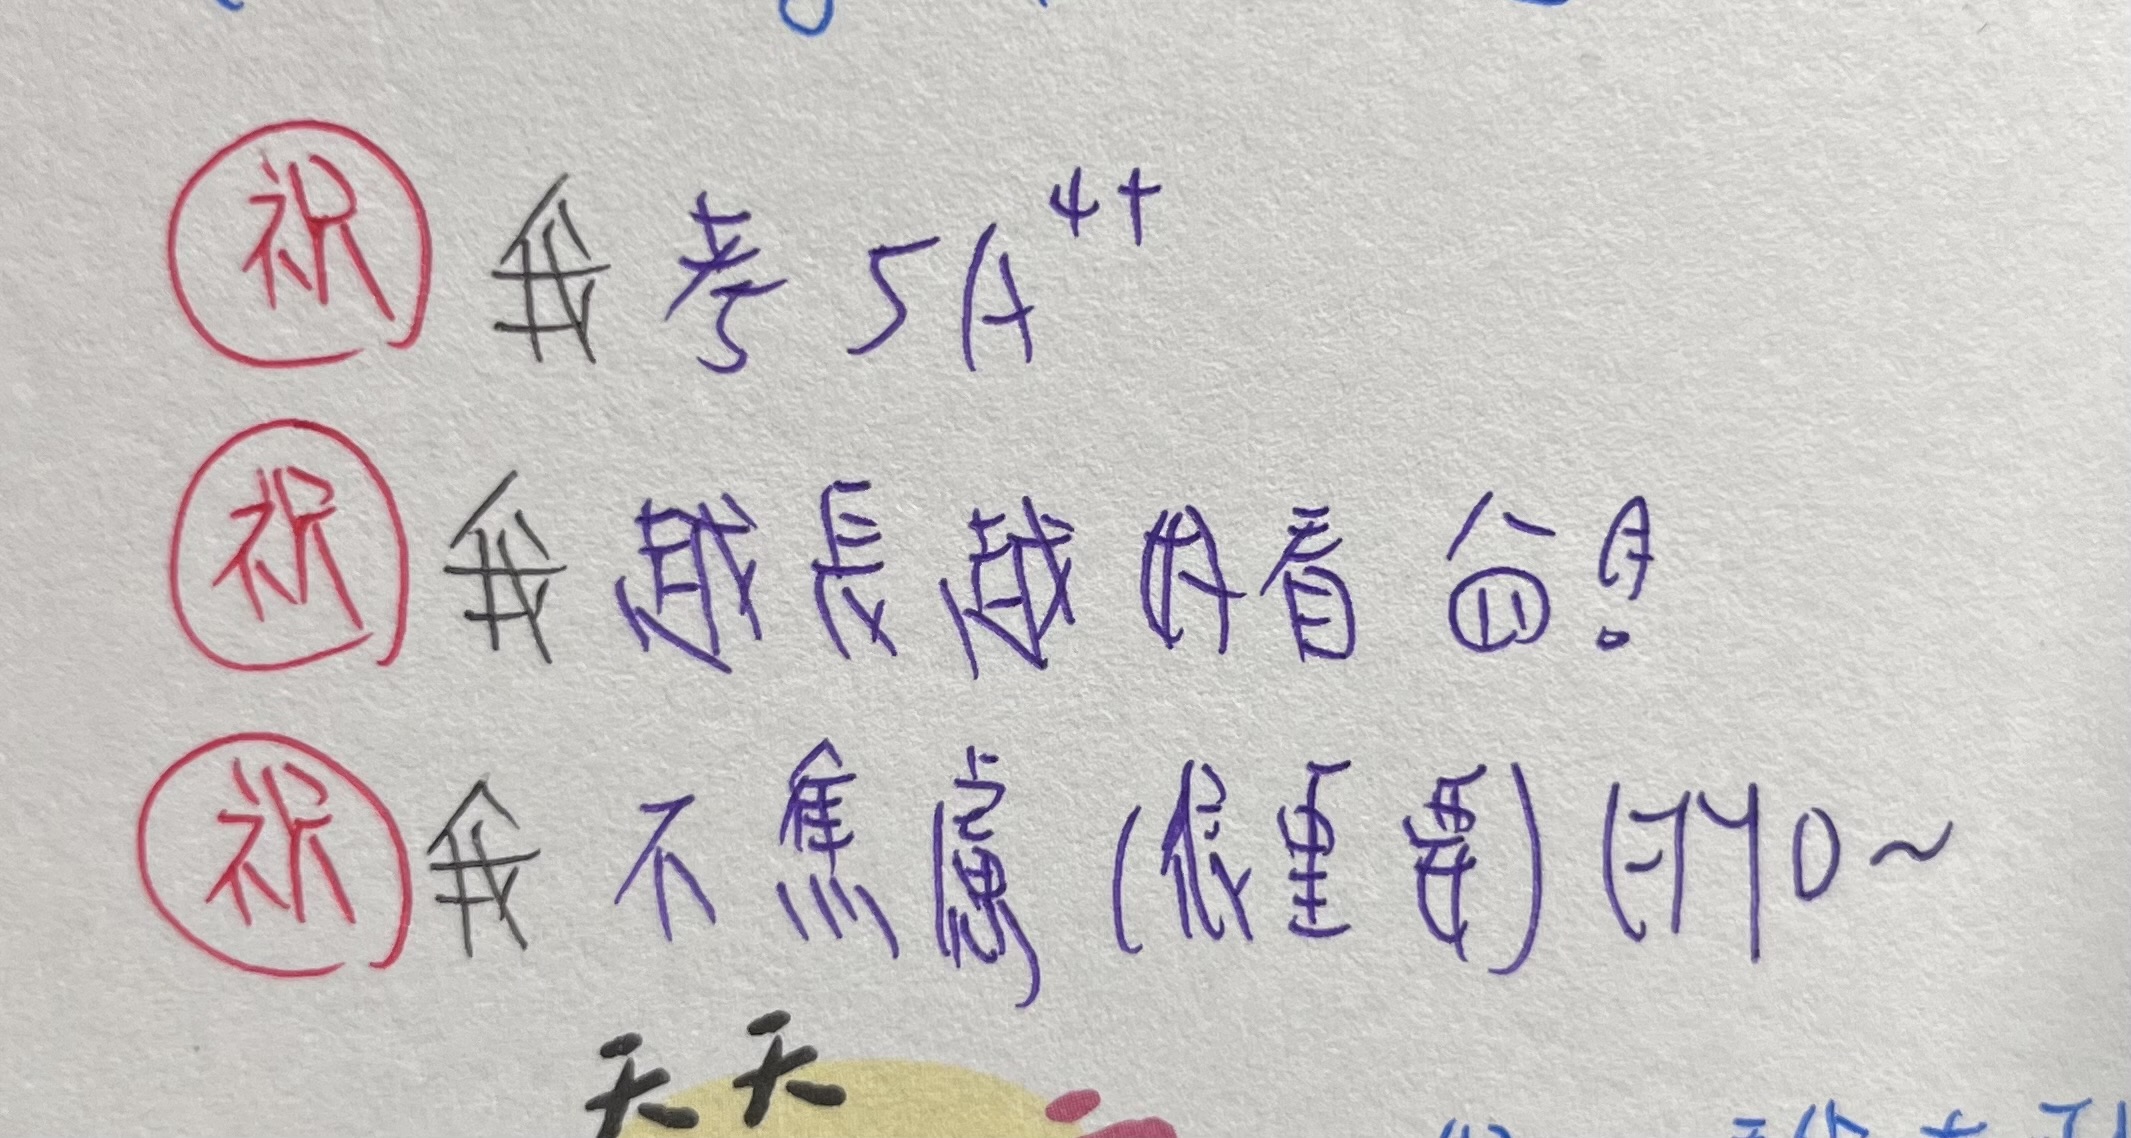 祝 我考5A⁴⁺
祝 我越長越好看
祝 我不焦慮(很重要)
天天